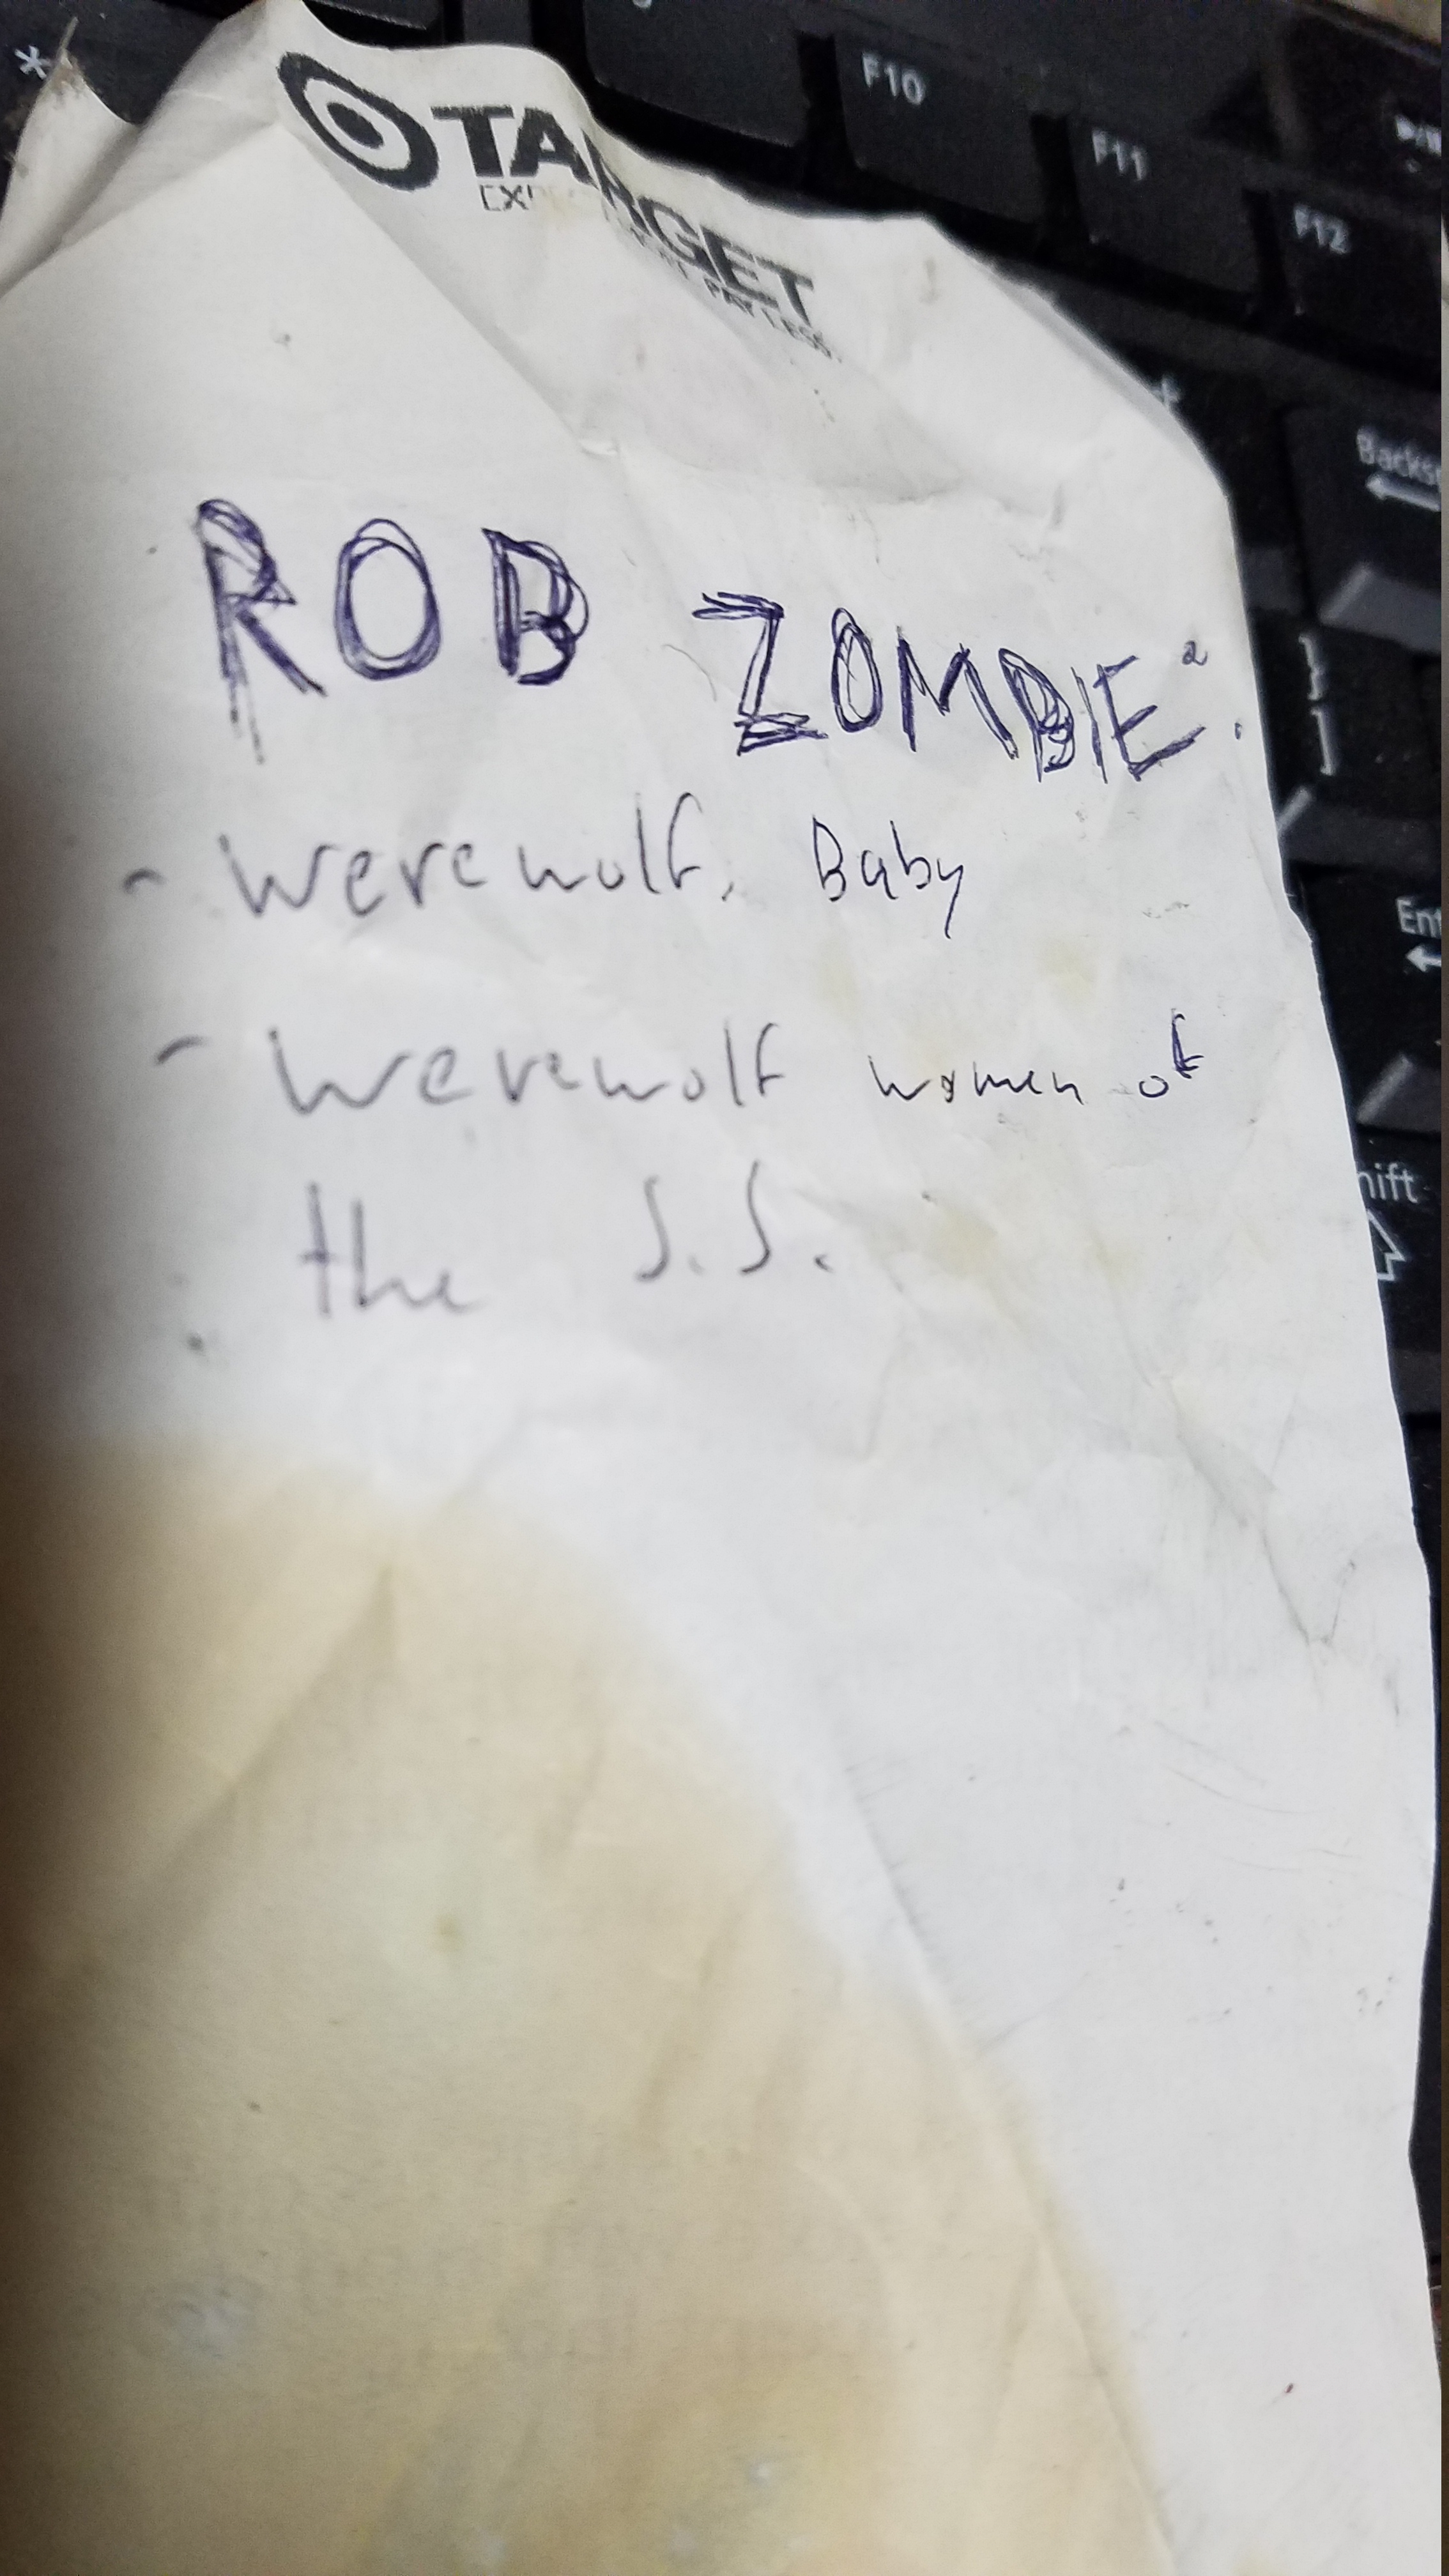 *
F10
F11
F12
TARGET
PAY LESS.
Backs
ROB ZOMBIE:
- Werewolf, Baby
Ent
- Werewolf women of
the S.S.
hift